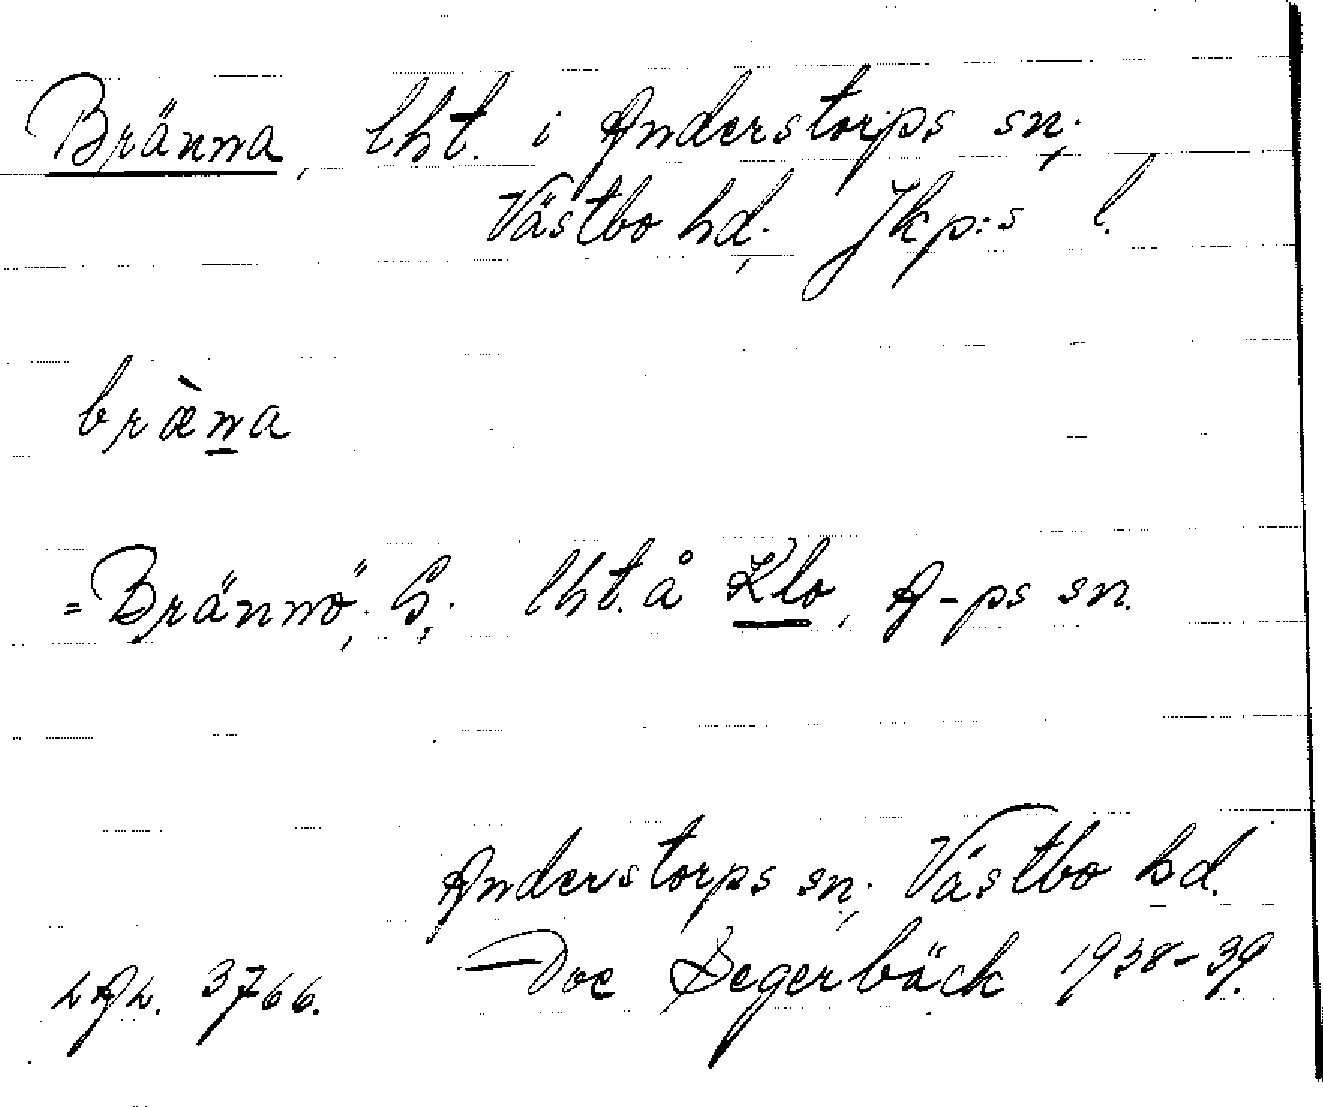 Bränna, lht. i Anderstorps sn.,
Västbo hd., Jkp:s l.
bræ̀na
= Brännö, S., lht. å Klo, A-ps sn.
Anderstorps sn., Västbo hd.
LAL. 3766. Doc Segerbäck 1938-39.